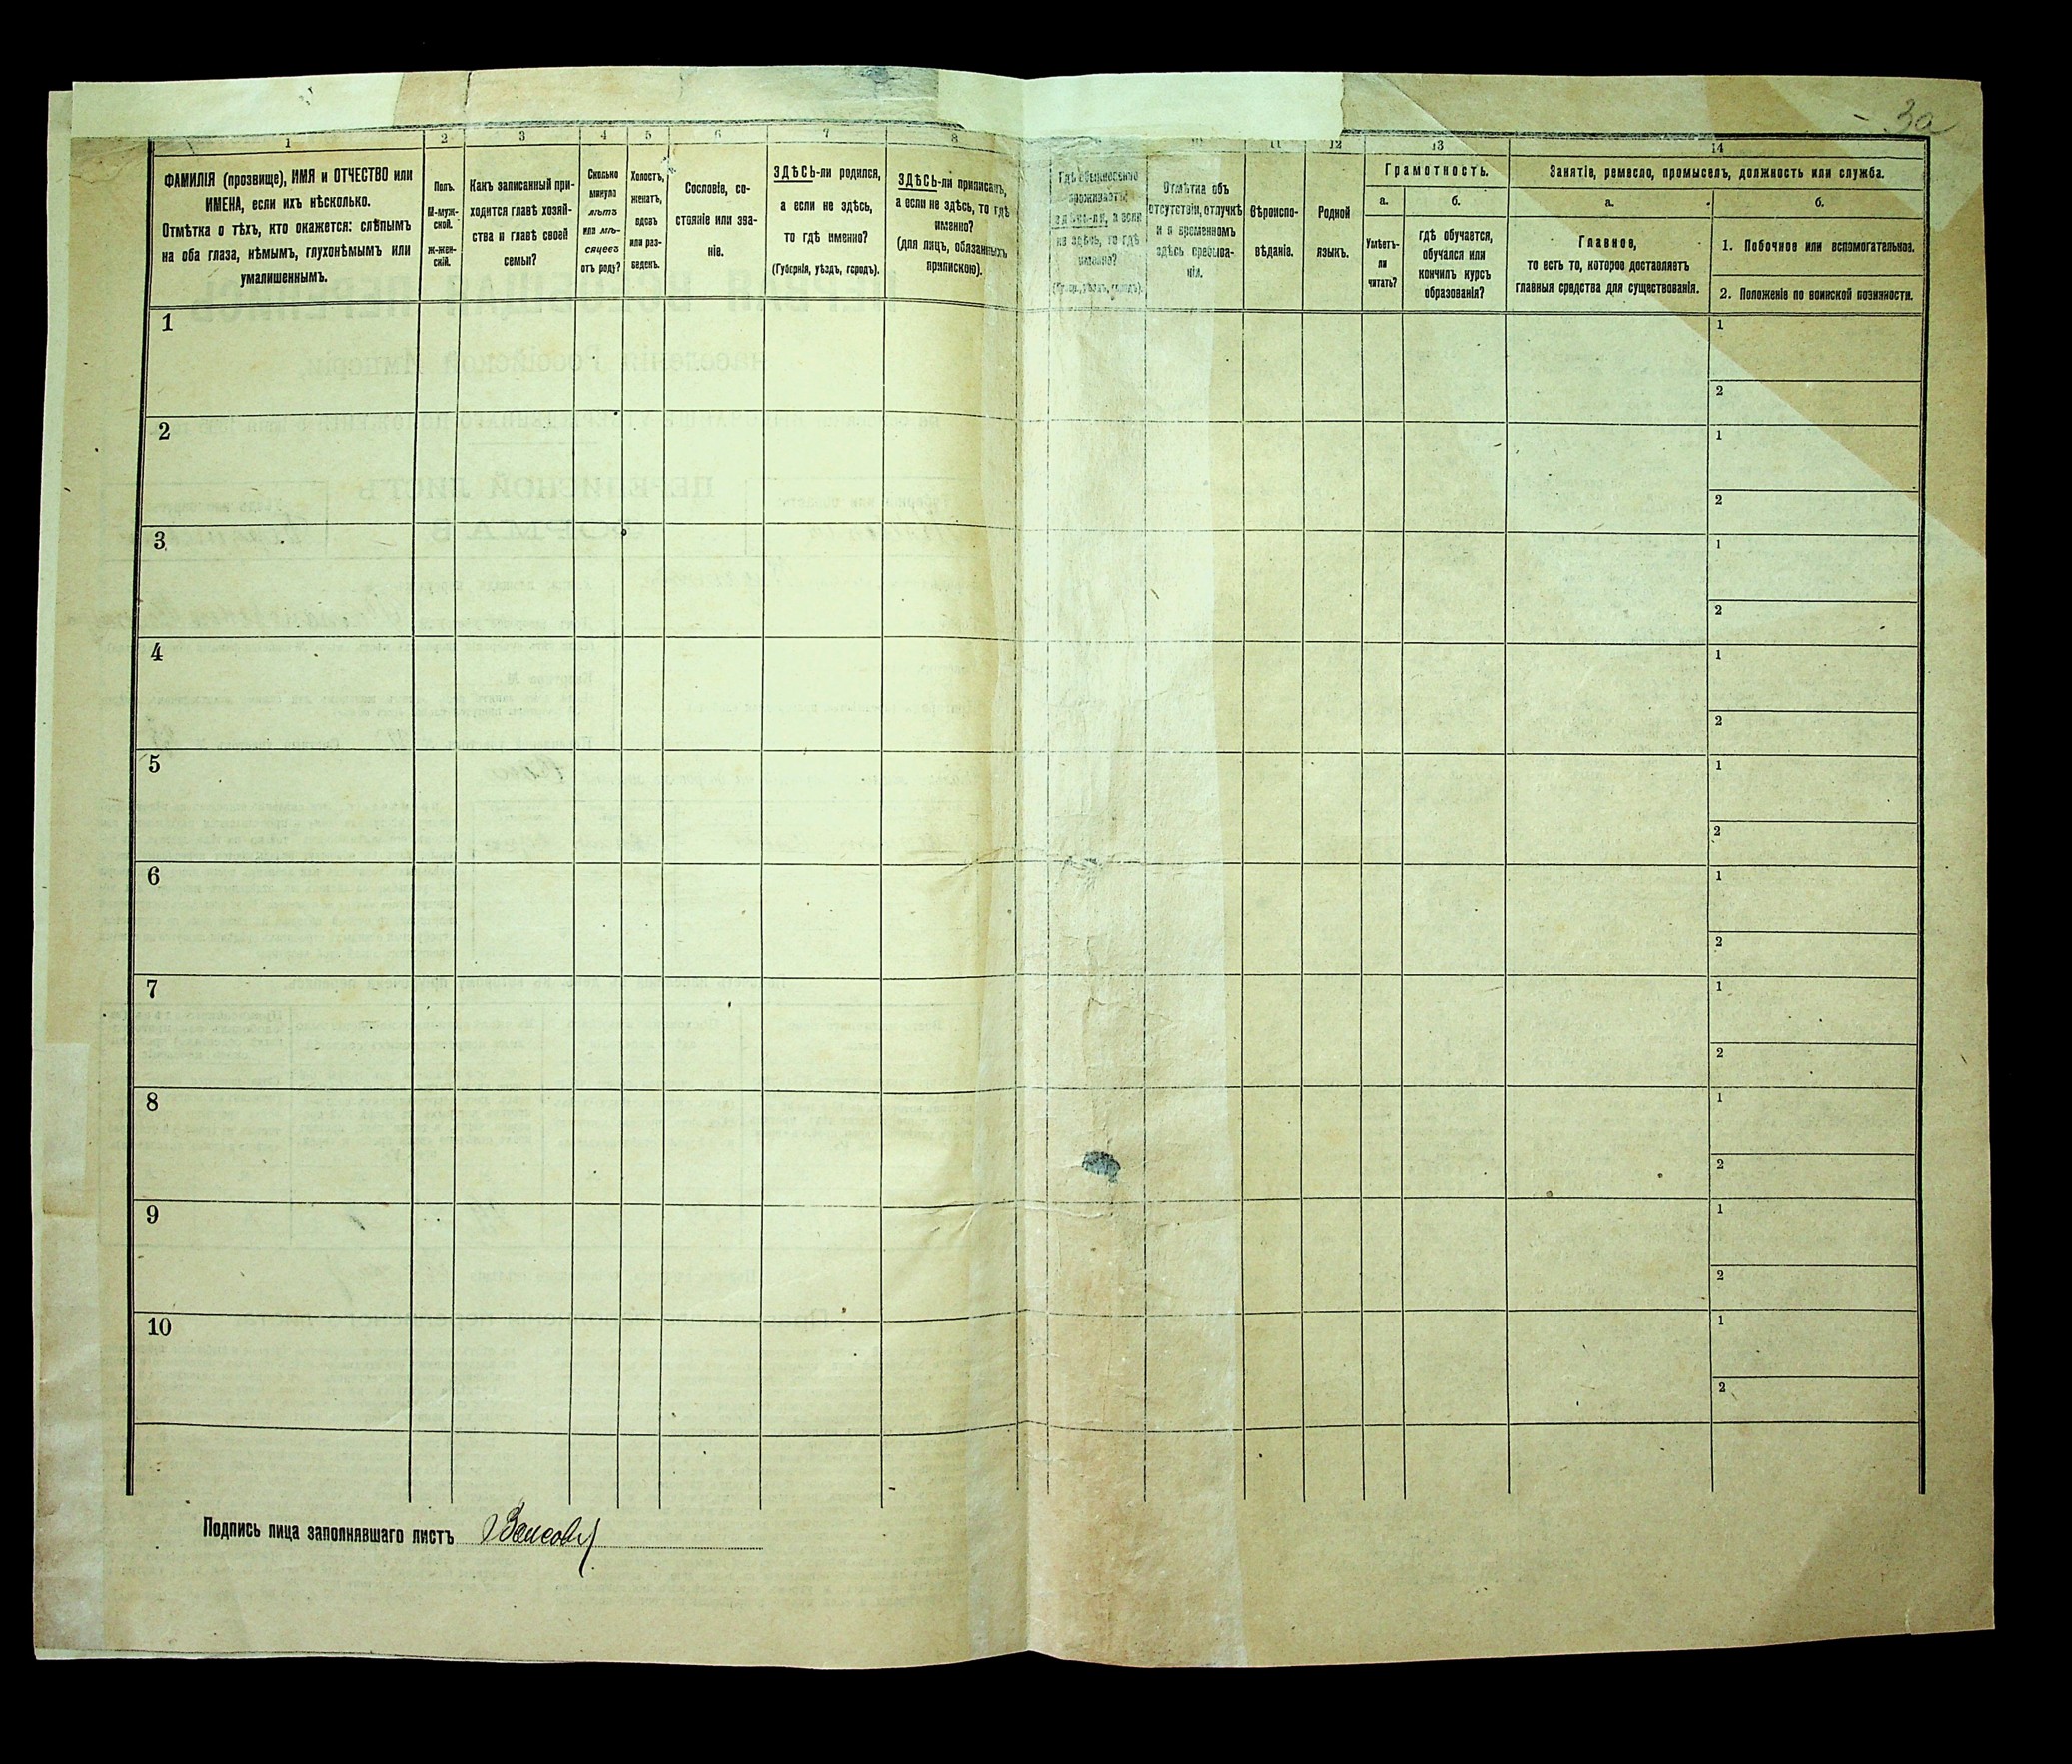 3а
1
2
3
4
5
6
7
8
12
13
14
ФАМИЛІЯ (прозвище), ИМЯ и ОТЧЕСТВО или
ИМЕНА, если ихъ нѣсколько.
Отмѣтка о тѣхъ, кто окажется: слѣпымъ
на оба глаза, нѣмымъ, глухонѣмымъ или
умалишеннымъ.
Полъ.
М-муж-
ской.
ж-жен-
скій.
Какъ записанный при-
ходится главѣ хозяй-
ства и главѣ своей
семьи?
Сколько
минуло
лѣтъ
или мѣ-
сяцевъ
отъ роду?
Холостъ,
женатъ,
вдовъ
или раз-
веденъ.
Сословіе, со-
стояніе или зва-
ніе.
ЗДѢСЬ-ли родился,
а если не здѣсь,
то гдѣ именно?
(Губернія, уѣздъ, городъ).
ЗДѢСЬ-ли приписанъ,
а если не здѣсь, то гдѣ
именно?
(для лицъ, обязанныхъ
припискою).
Гдѣ обыкновенно
проживаетъ:
здѣсь-ли, а если
не здѣсь, то гдѣ
именно?
(Губер., уѣздъ, городъ).
Отмѣтка объ
отсутствіи, отлучкѣ
и о временномъ
здѣсь пребыва-
ніи.
Вѣроиспо-
вѣданіе.
Родной
языкъ.
Грамотность.
а.
б.
Умѣетъ-
ли
читать?
гдѣ обучается,
обучался или
кончилъ курсъ
образованія?
Занятіе, ремесло, промыселъ, должность или служба.
а.
б.
Главное,
то есть то, которое доставляетъ
главныя средства для существованія.
1. Побочное или вспомогательное.
2. Положеніе по воинской повинности.
1
1
2
2
1
2
3
1
2
4
1
2
5
1
2
6
1
2
7
1
2
8
1
2
9
1
2
10
1
2
Подпись лица заполнявшаго листъ